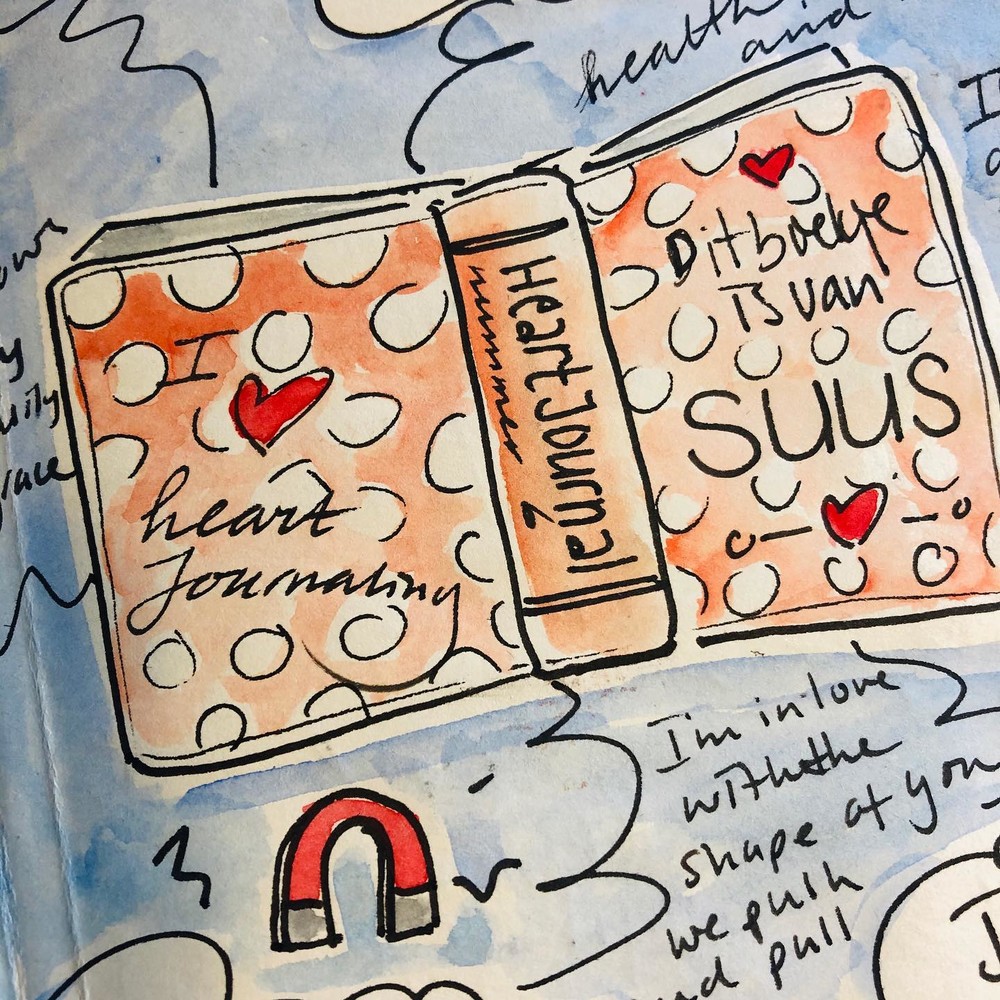 health
and
I
heart
Journaling
Heart Journal
nummer
Dit boekje
is van
suus
I'm in love
with the
shape of you
we push
and pull